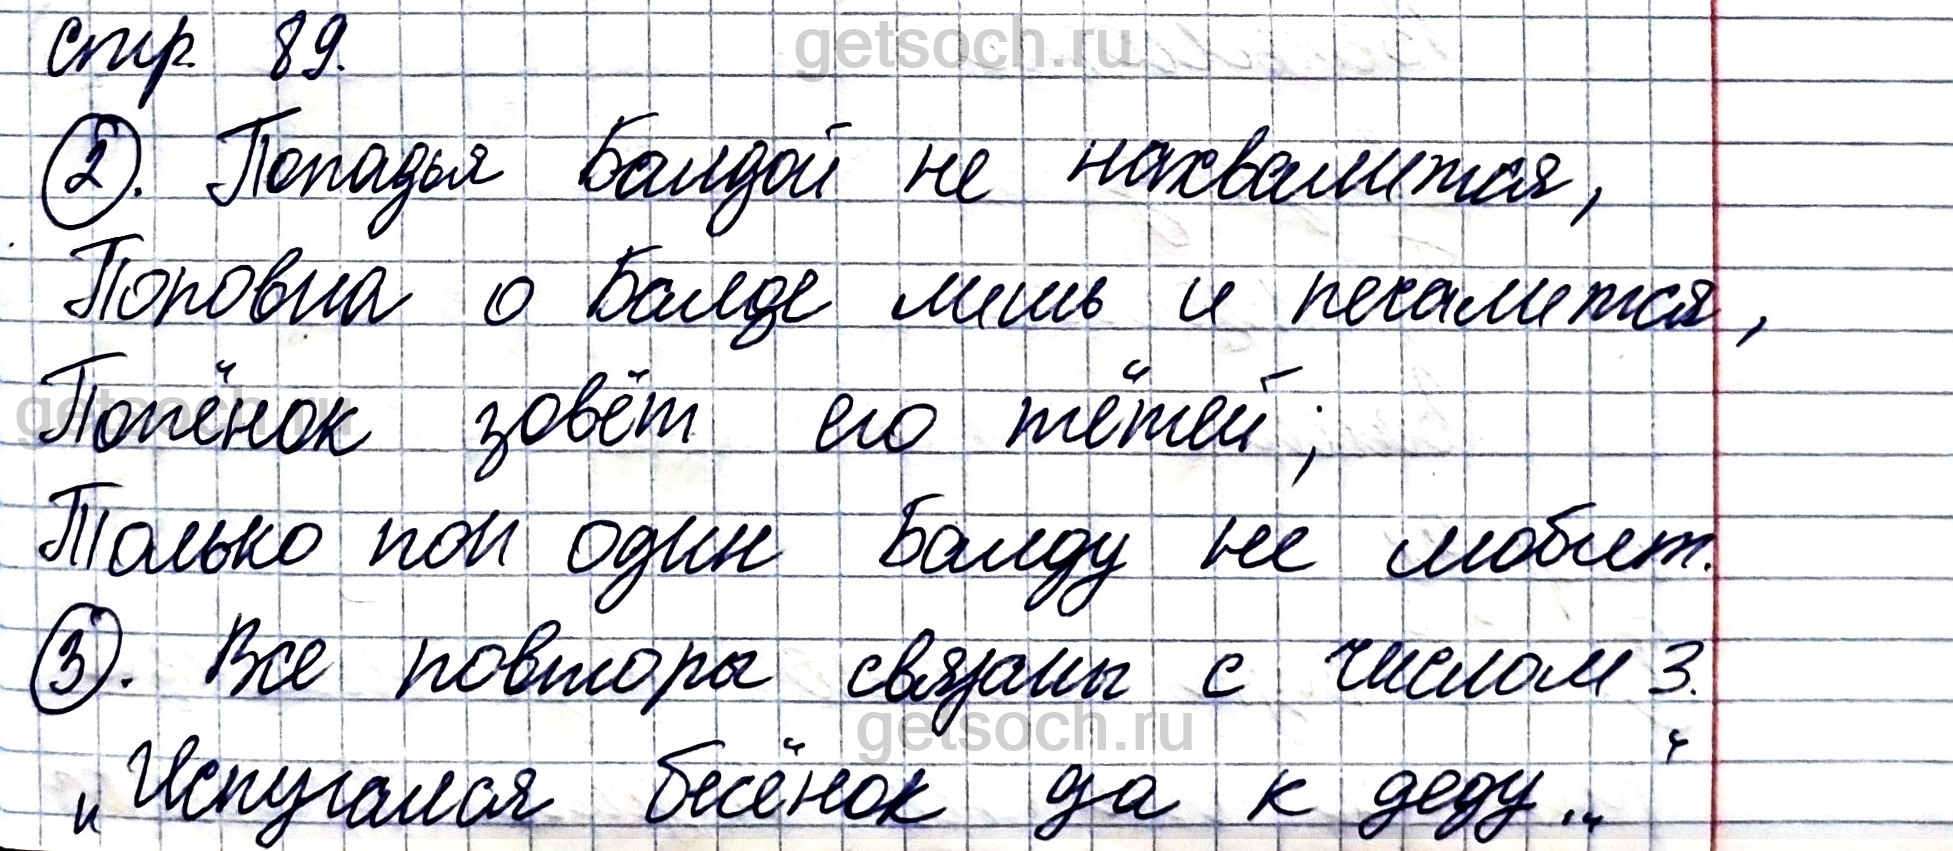 getsoch.ru
стр. 89.
2. Попадья Балдой не нахвалится,
Поповна о Балде лишь и печалится,
getsoch.ru
Попёнок зовёт его тётей;
Только поп один Балду не любит.
3. Все повторы связаны с числом 3.
getsoch.ru
„Испугался бесёнок да к деду..."